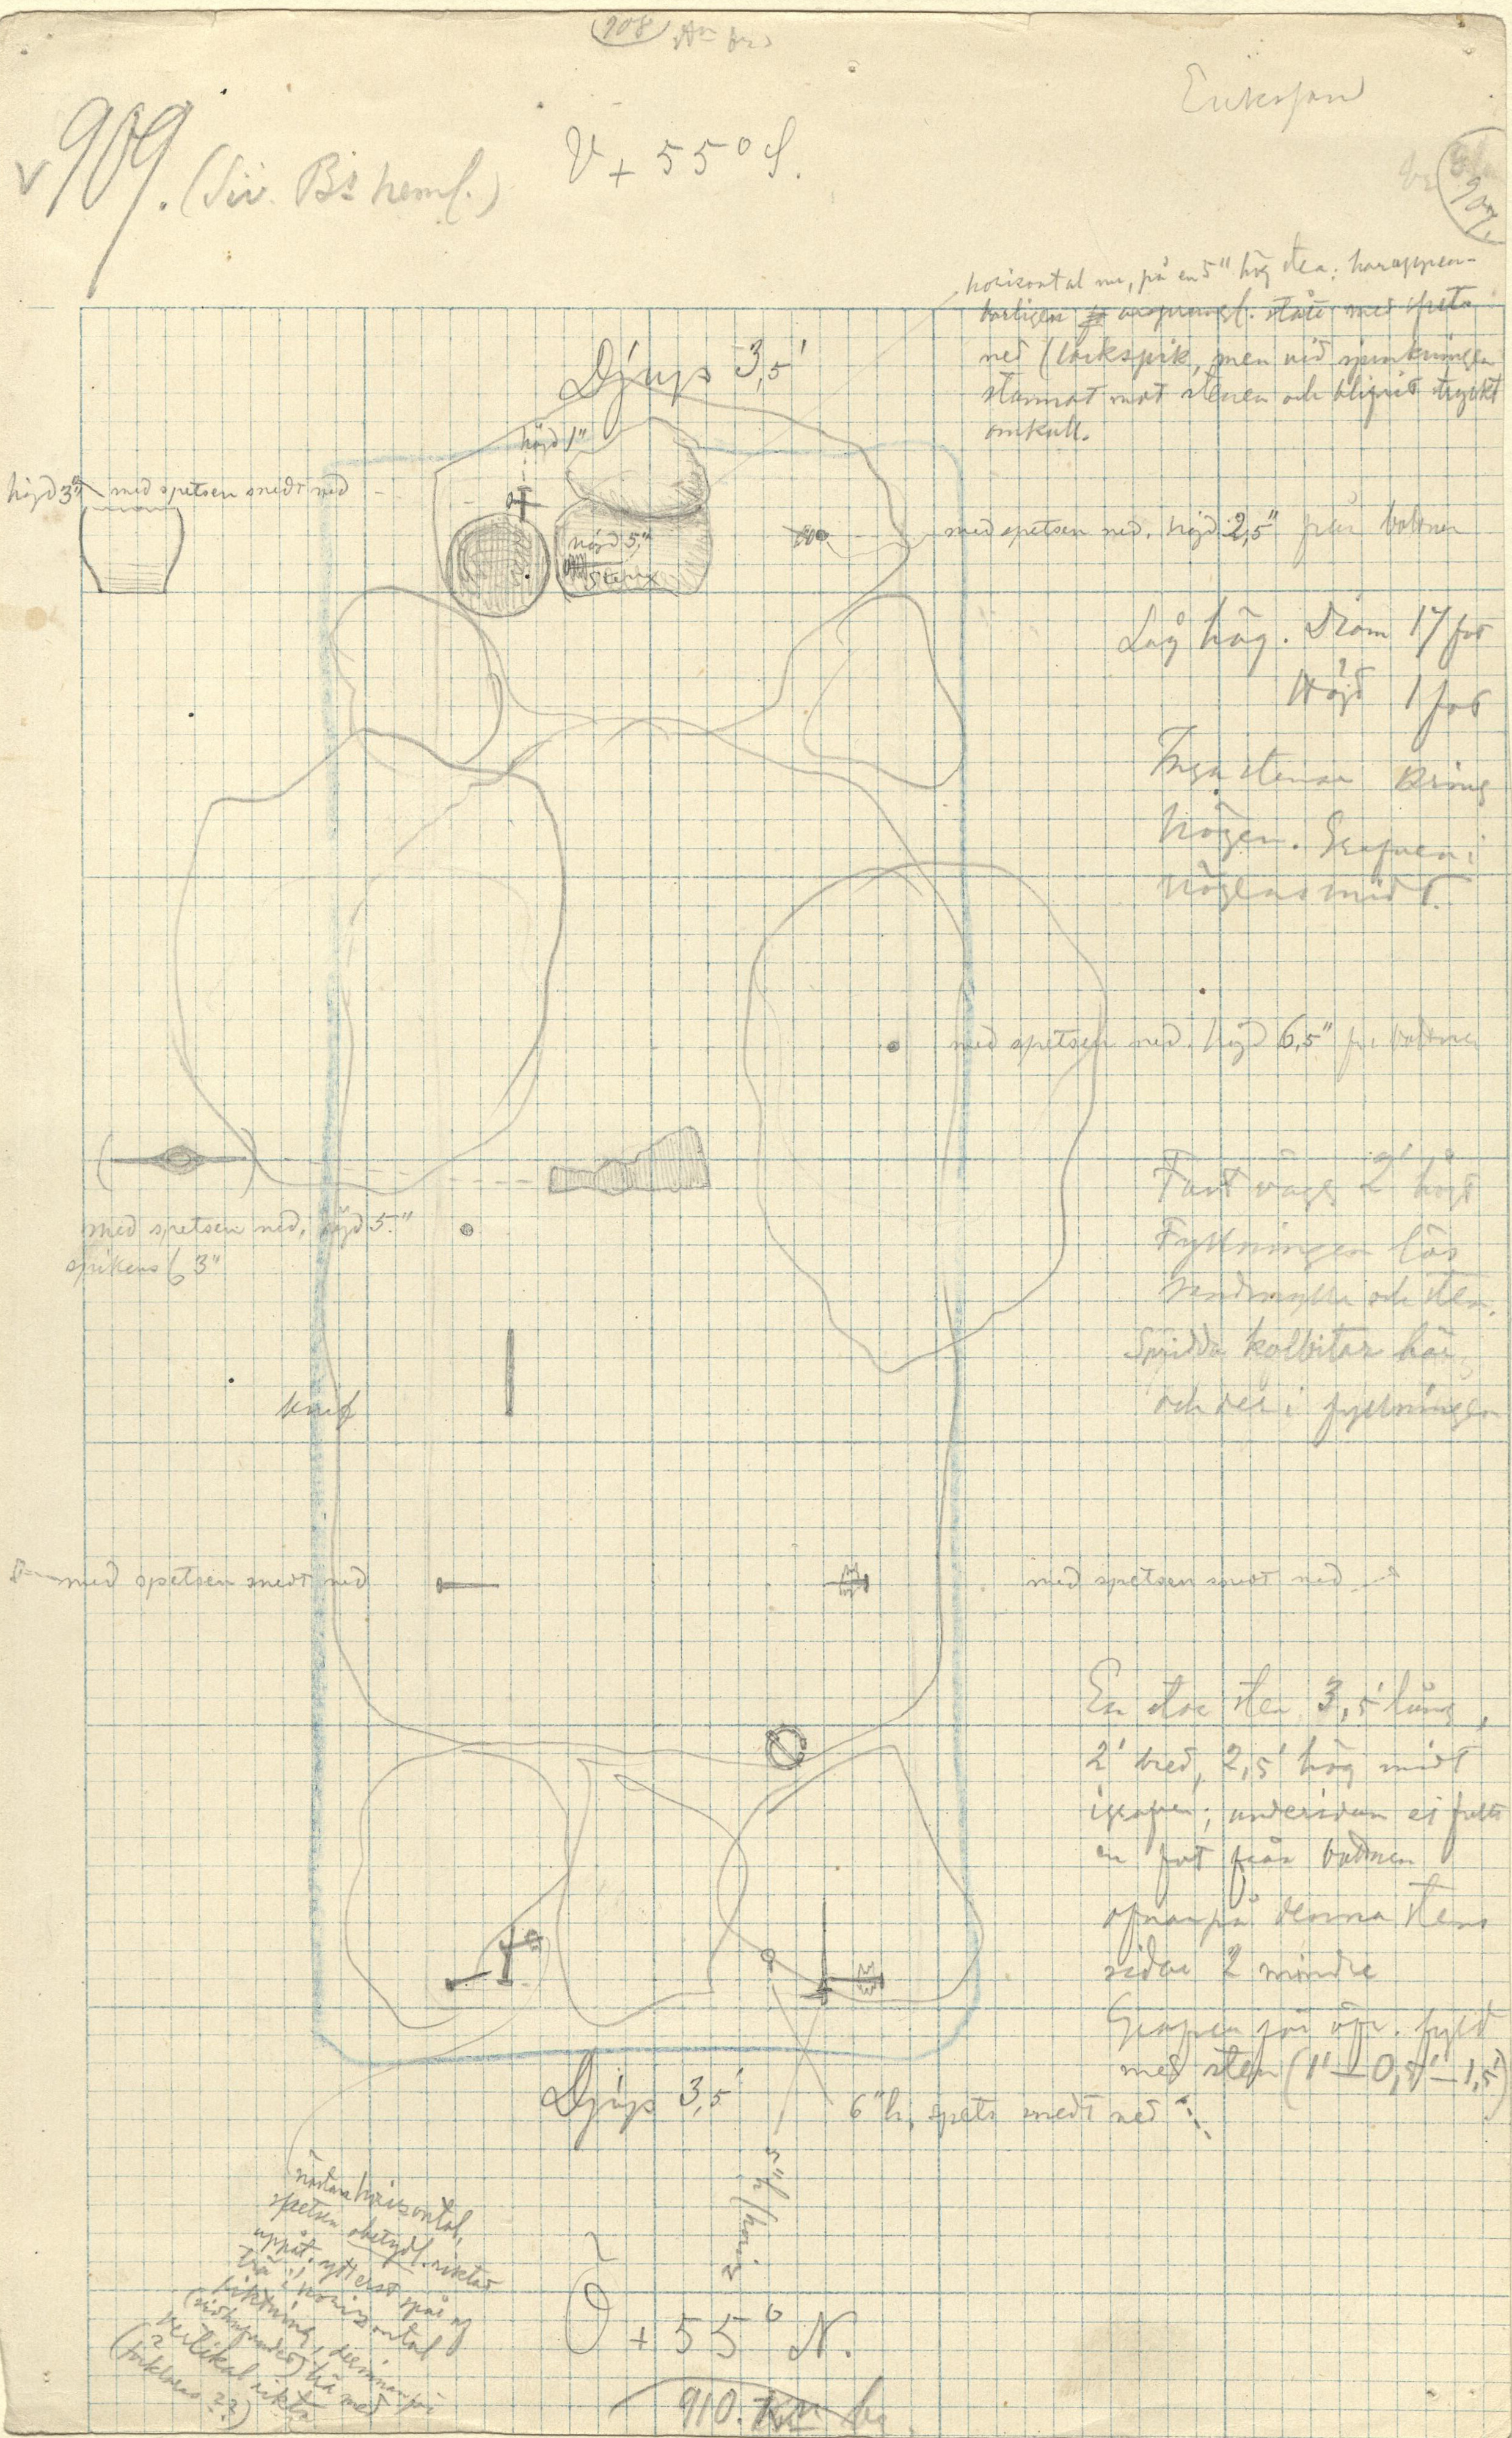 908
Eriksson
909. (Siv. B:s heml.)
V + 55° S.
907.
horisontal nu, på en 5" hög sten; har uppen-
barligen ursprungl. stått med spets
ned (lockspik, men vid sjunkningen
stannat mot stenen och blifvit tryckt
omkull.
Djup 3,5'
höjd 1"
höjd 3" med spetsen snedt ned
höjd 5"
Sten
med spetsen ned. höjd 2,5" från bottnen
Låg hög. Diam 17 fot
Höjd 1 fot
Inga stenar kring
högen. Grafven i
högens midt.
med spetsen ned. höjd 6,5" fr. bottnen
med spetsen ned, höjd 5."
spikens l. 3"
2' högt
Fyllningen lös
sandmylla och sten.
Spridda kolbitar här
och der i fyllningen
knif
med spetsen snedt ned
med spetsen snedt ned
En stor sten 3,5' lång,
2' bred, 2,5' hög midt
i grafven; undersidan ej fullt
en fot från bottnen
ofvanpå denna stens
sidor 2 mindre
Grafven för öfr. fyld
med sten (1' — 0,5' — 1,5')
Djup 3,5'
6" h, spets snedt ned
5" h / horiz
nästan horisontal,
spetsen obetydl. riktad
uppåt, ytterst spår af
trä i horizontal
riktning, derinnanför
(vidhufvudet) trä med
vertikal riktn
(förklaras ??)
Ö + 55° N.
910.